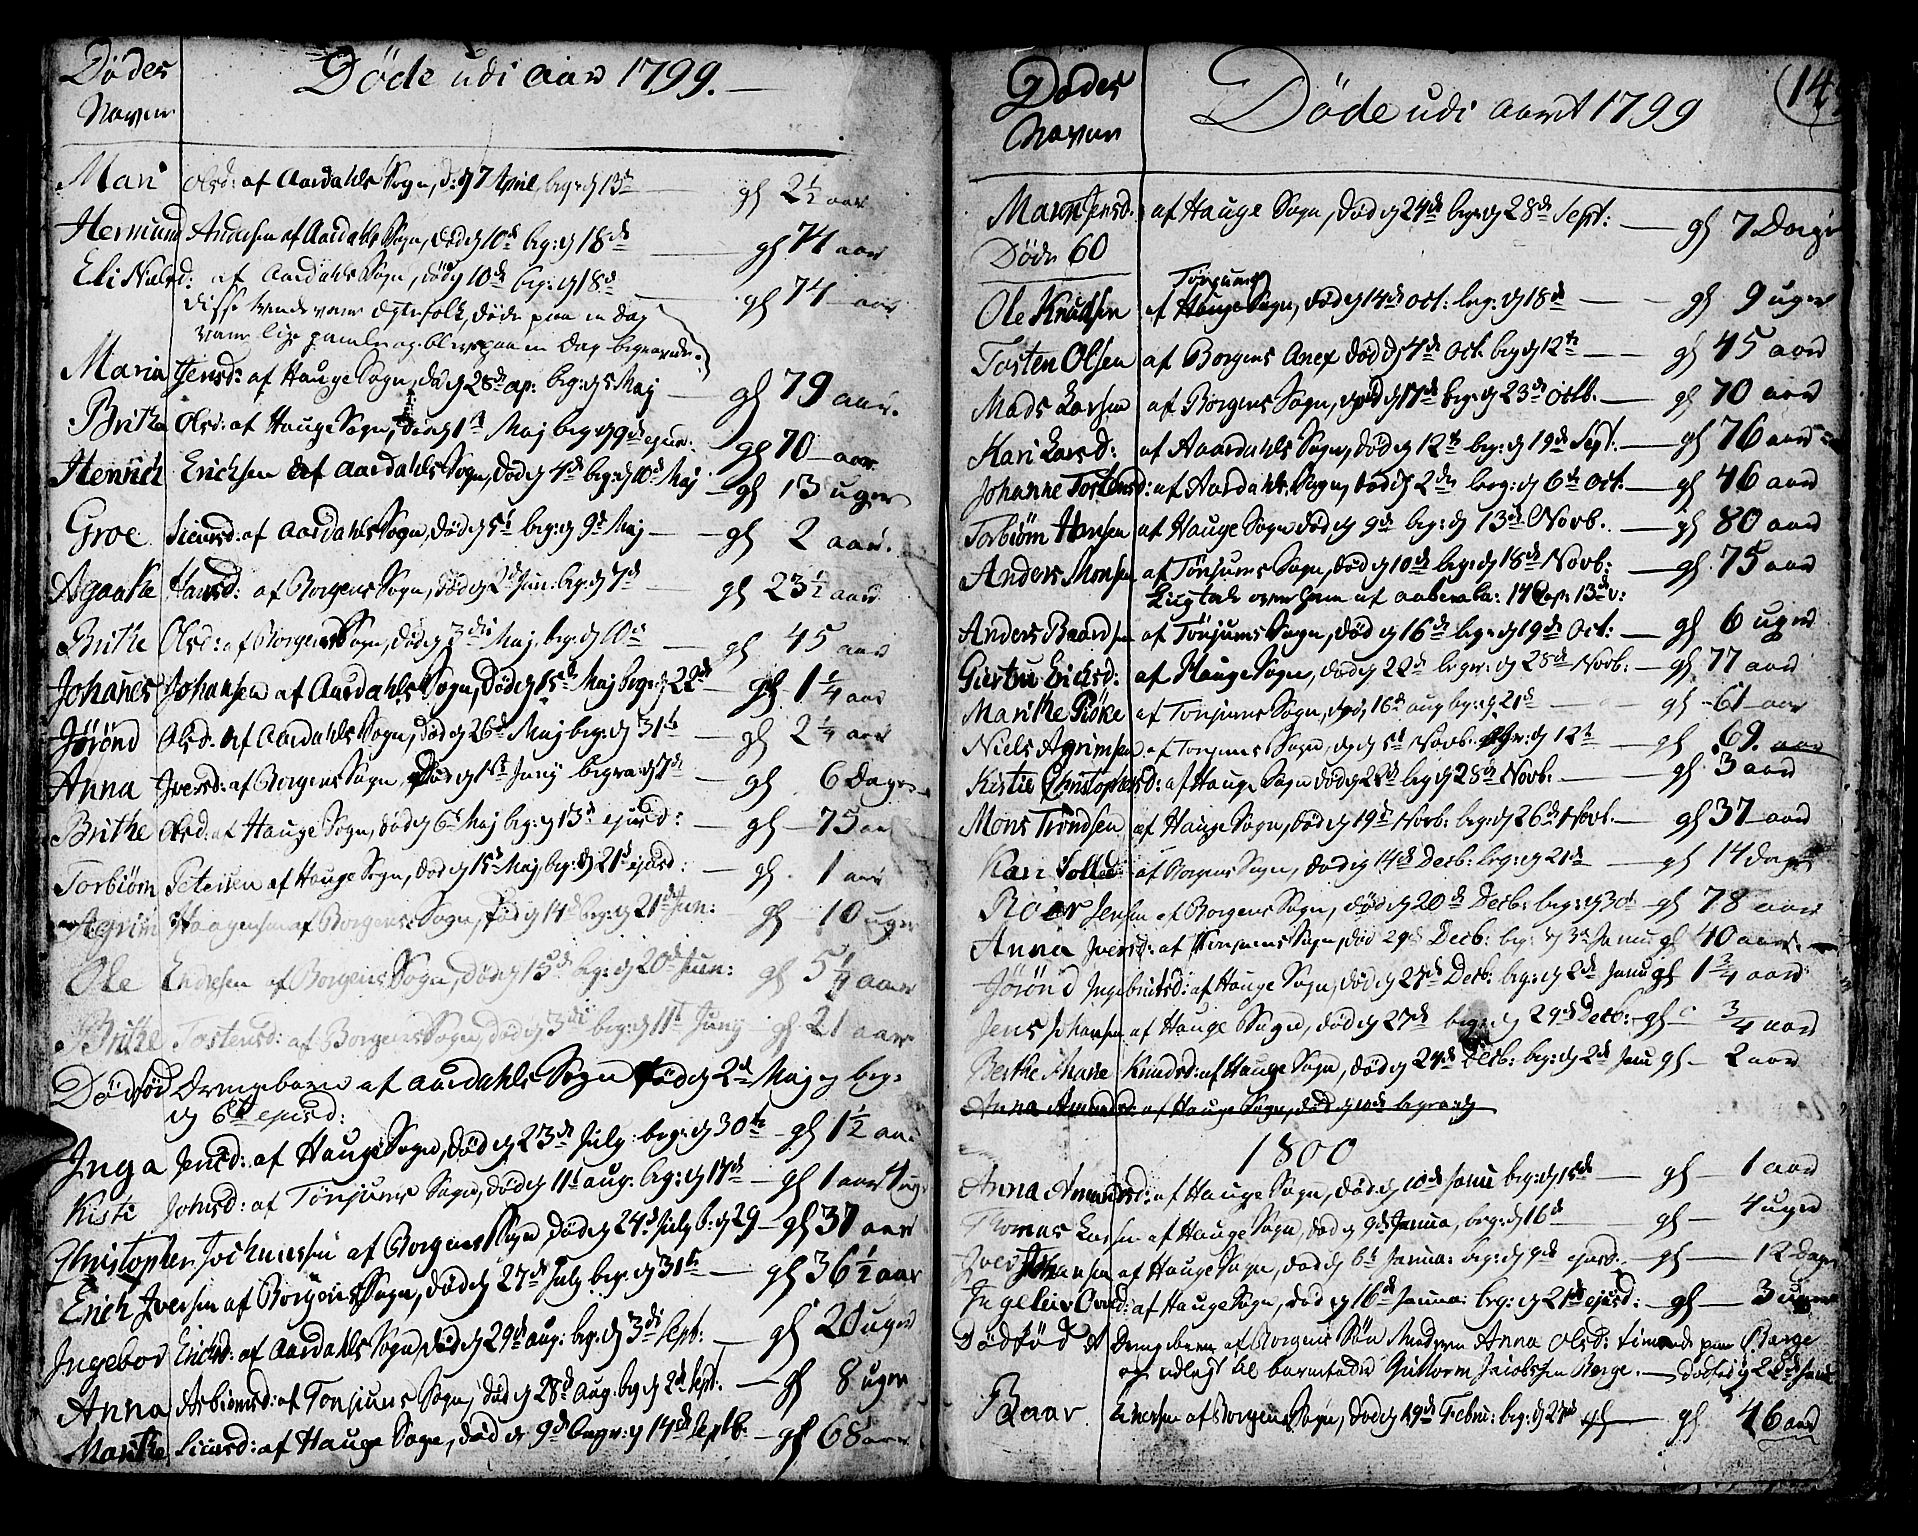 Dödes
Navne
Döde udi Aar 1799.
Mari Olsd: af Aardahls Sogn, d: d 7 April, beg: d 13de gl 2½ aar
Hermund Andersen af Aardahls Sogn, död d 10de beg: d 18de gl 74 aar
Eli Nielsd: af Aardahls Sogn, död d 10de beg: d 18de gl 74 aar
disse tvende vare Ægtefolk, döde paa en dag
vare lige gamle og blev paa en dag begravede.
Maria Jensd: af Hauge Sogn, död d 28de ap: beg: d 5 Maj gl 79 aar.
Britha Olsd: af Hauge Sogn, död d 1st Maj beg d 9de ejusd: gl 70 aar
Henrich Erichsen af Aardahls Sogn, död d 4de beg: d 10de Maj gl 13 uger
Groe Siursd: af Aardahls Sogn, död d 5t beg: d 9de Maj gl 2 aar.
Agaatha Hansd: af Borgens Sogn, död d 2d Jun: beg: d 7de gl 23½ aar
Brithe Olsd: af Borgens Sogn, död d 3die Maj, beg: d 10de gl 45 aar
Johanes Johansen af Aardahls Sogn, död d 15de Maj beg: d 22de gl 1¼ aar
Jörönd Olsd. af Aardahls Sogn, död d 26de Maj beg: d 31te gl 2¼ aar
Anna Iversd: af Borgens Sogn, död d 1st Junij begra: d 7de gl 6 Dage
Brithe Olsd: af Hauge Sogn, död d 6te Maj beg: d 13de ejusd: gl 75 aar
Torbiörn Petersen af Hauge Sogn, död d 15de Maj, beg: d 21de ejusd: gl 1 aar
Agrim Haagensen af Borgens Sogn, död d 14de beg: d 21de Jun: gl 10 uger
Ole Endresen af Borgens Sogn, död d 15de beg: d 20de Jun: gl 5¼ aar
Brithe Tostensd: af Borgens Sogn, död d 3die beg: d 11te Junij gl 21 aar
Dödföd Drengebarn af Aardahls Sogn föd d 2de Maj og beg:
d 6te ejusd:
Inga Jensd: af Hauge Sogn, död d 23de July beg: d 30te gl 1½ aar
Kisti Johnsd: af Tönjums Sogn, död d 11te aug: beg: d 17de gl 1 aar 4 ug:
Christopher Jochumsen af Borgens Sogn, död d 24de July b: d 29 gl 37 aar
Erich Iversen af Borgens Sogn, död d 27de July beg: d 31te gl 36½ aar
Ingebor Erichsd: af Aardahls Sogn, död d 29de aug: beg: d 3di Sept: gl 20 uger
Anna Asbiörnsd: af Tonjums Sogn, död d 28de Aug. beg d 2de Sept. gl 8 uger
Marithe Siursd: af Hauge Sogn, död d 9de begr: d 14de Septb. gl 68 aar
Dödes
Navne
Döde udi Aaret 1799
Jensd. af Hauge Sogn, död d 24de beg: d 28de Sept: gl 7 Dage
Döde 60
Tönjums
Ole Knudsen af Hauge Sogn, död d 14de Oct: beg: d 18de gl 9 uger
Tosten Olsen af Borgens Anex död d 4de Oct. beg d 12te gl 45 aar
Mads Larsen af Borgens Sogn, död d 17de beg: d 23de Octb. gl 70 aar
Kari Larsd: af Aardahls Sogn, död d 12te beg: d 19de Sept. gl 76 aar
Johanne Tostensd: af Aardahls Sogn, död d 2de beg: d 6te Oct. gl 46 aar
Torbiörn Hansen af Hauge Sogn död d 9de beg: d 13de Novb. gl 80 aar
Anders Monsen af Tönjums Sogn, död d 10de beg: d 18de Novb: gl 75 aar
Liigtale over ham af aabenba: 14 Cap: 13de v:
Anders Baardsen af Tönjums Sogn, död d 16de beg: d 19de Oct: gl 6 uger
Giertru Erichsd: af Hauge Sogn, död d 22de begr: d 28de Novb: gl 77 aar
Marithe Röke af Tonjums Sogn, död, 16de aug beg: d 21de gl 61 aar
Niels Agrimsen af Tonjums Sogn, död d 5t Novb. begr: d 12te gl 69. aar
Kistie Christophersd: af Hauge Sogn död d 22de beg d 28de Novb: gl 3 aar
Mons Trondsen af Hauge Sogn, död d 19de Novb: beg: d 26de Novb. gl 37 aar
Kari af Borgens Sogn, död d 14de Decb: beg: d 21de gl 14 dage
Roar Jensen af Borgens Sogn, död d 20de Decb: beg: d 30d gl 78 aar
Anna Iversd: af Tonjums Sogn, död 29de Decb: beg: d 3de Janu gl 40 aar.
Jörönd Ingebritsd: af Hauge Sogn, död d 27de Decb: beg: d 2de Janu gl 1¾ aar
Jens Johansen af Hauge Sogn, död d 27de beg: d 29de Decb: gl ¾ aar
Berthe Knudsd: af Hauge Sogn, död d 24de Decb: beg: d 2de Janu gl 2 aar
Anna Amundsd: af Hauge Sogn, död d 10de begra: d
1800
Anna Amundsd: af Hauge Sogn, död d 10de Janu beg: d 15de gl 1 aar
Thomas Larsen af Hauge Sogn, död d 9de Janua, beg: d 16de gl 4 uger
Iver Johansen af Hauge Sogn, död d 6te Janua: beg: d 9de ejusd: gl 12 Dage
Ingeleiv af Hauge Sogn, död d 16de Janua: beg: d 21de ejusd: gl 3 uger
Dödföd et Drengebarn af Borgens Sogn Moderen Anna Olsd: paa Borge
og udlagt til barnefader Guttorm Jacobsen Borge. dödföd d 22de Janu
Baar Einersen af Borgens Sogn, död d 19de Febru: beg: d 27de gl 46 aar